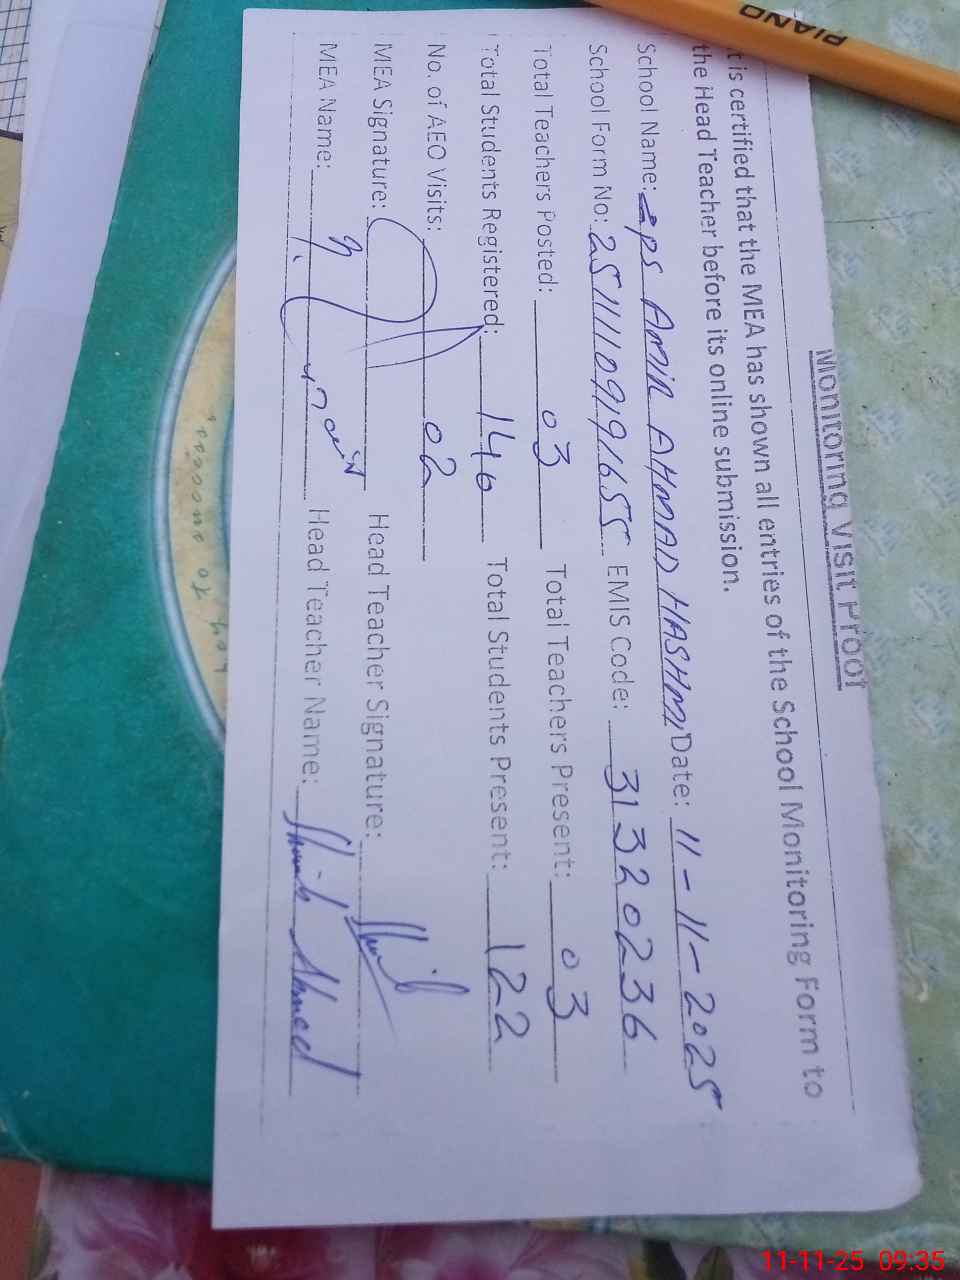 PIANO
Monitoring Visit Proof
It is certified that the MEA has shown all entries of the School Monitoring Form to
the Head Teacher before its online submission.
School Name: GPS AMIR AHMAD HASHMI Date: 11-11-2025
School Form No: 251111091991655 EMIS Code: 31320236
Total Teachers Posted: 03 Total Teachers Present: 03
Total Students Registered: 146 Total Students Present: 122
No. of AEO Visits: 02
MEA Signature: Head Teacher Signature:
MEA Name: Head Teacher Name: Ahmed
11-11-25 09:35